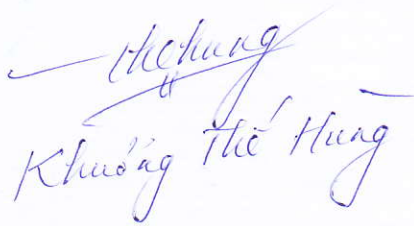 thehung
Khương Thế Hùng